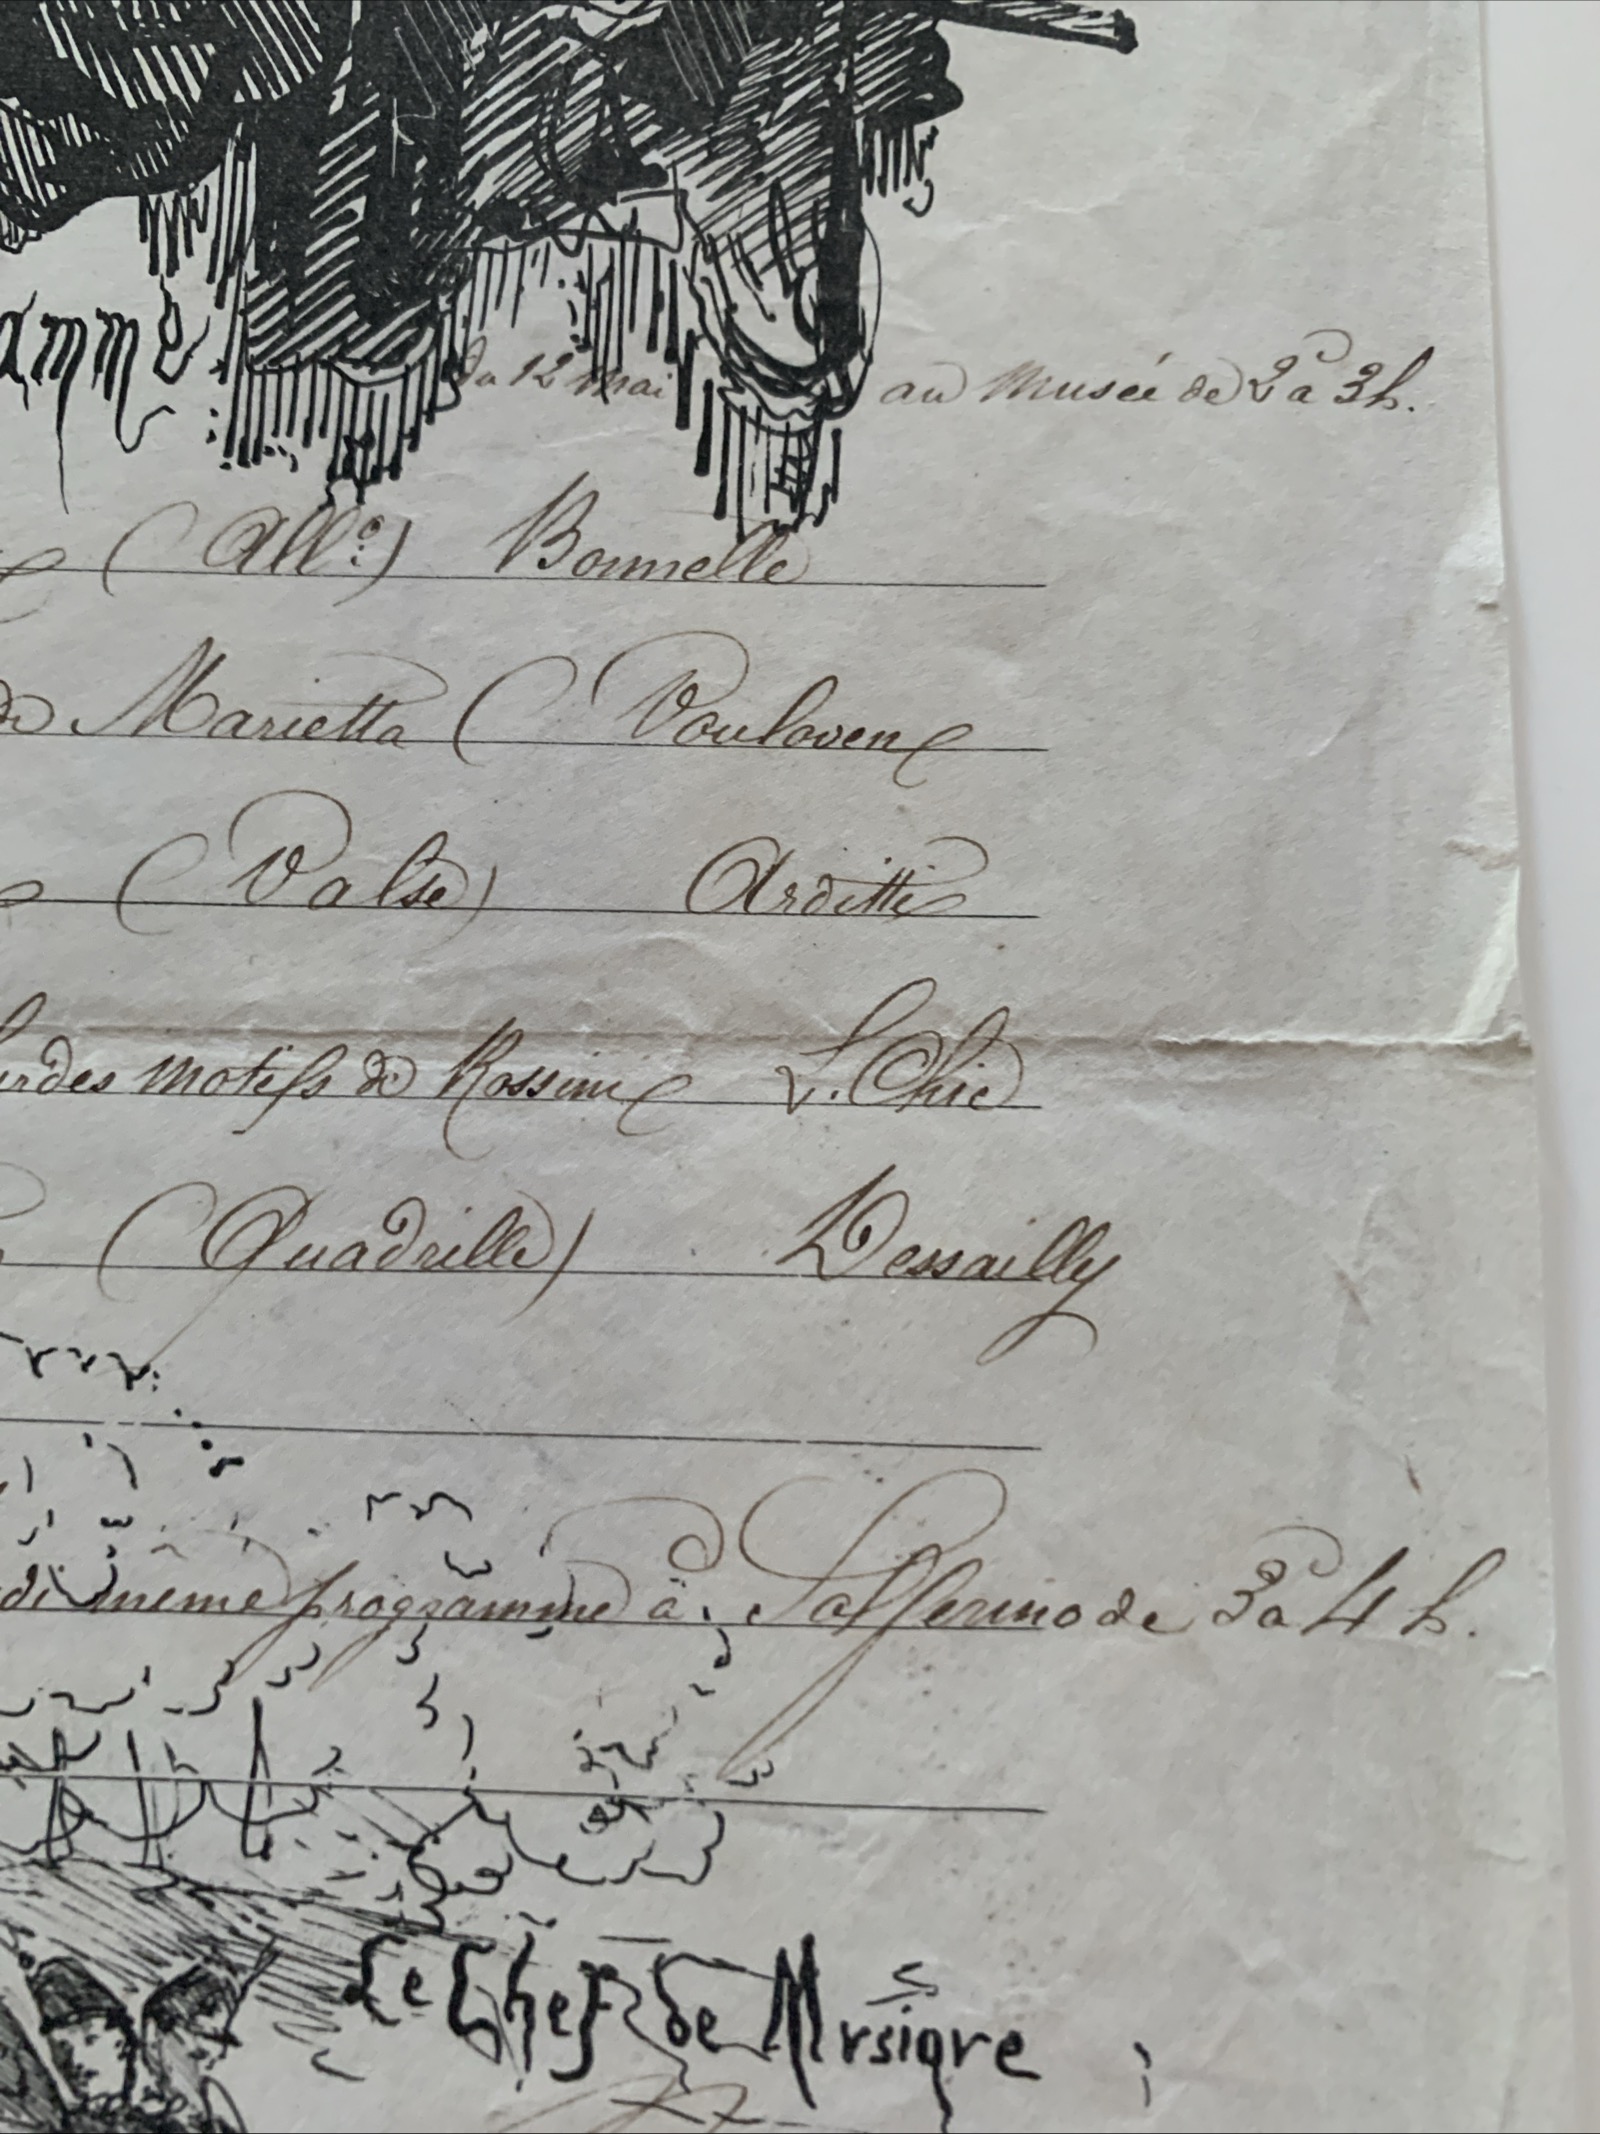 amme du 12 mai au Musée de 2 à 3h.
(All°:) Bonnelle
de Marietta ( Vouloven
(Valse) Arditti
sur des motifs de Rossini L. Chic
(Quadrille) Dessailly
di même programme à Solferino de 3 à 4 h.
Le Chef de Musique